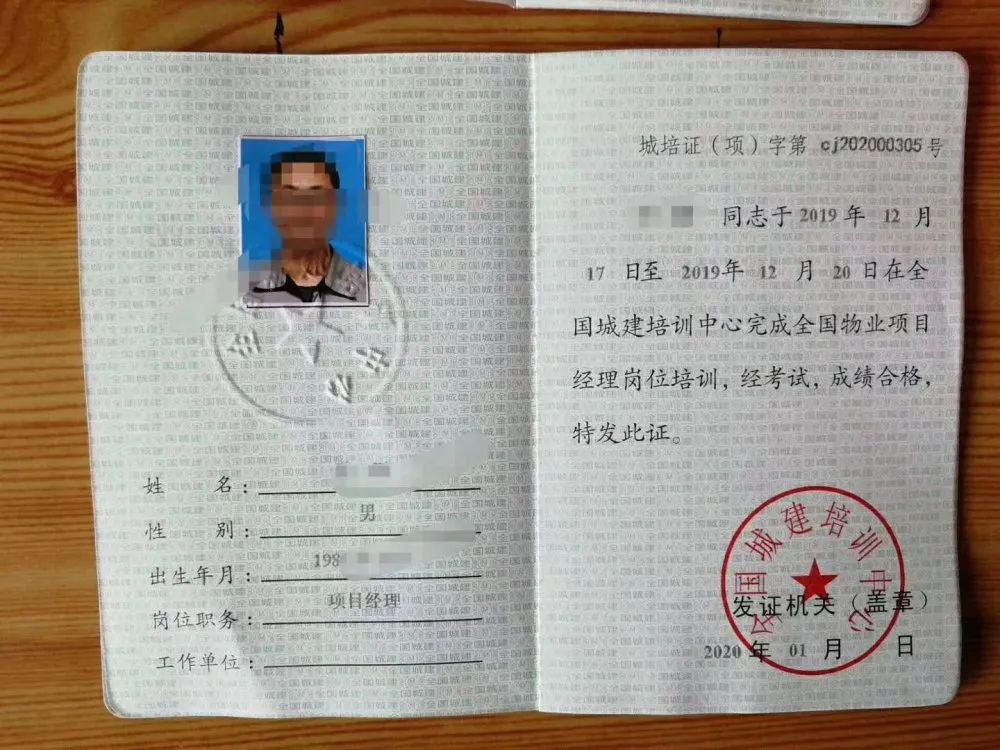 姓 名：
性 别： 男
出生年月： 198
岗位职务： 项目经理
工作单位：
中心
城培证（项）字第 cj202000305 号
同志于 2019 年 12 月
17 日至 2019年 12 月 20 日在全
国城建培训中心完成全国物业项目
经理岗位培训，经考试，成绩合格，
特发此证。
全国城建培训中心
发证机关（盖章）
2020 年 01 月 日